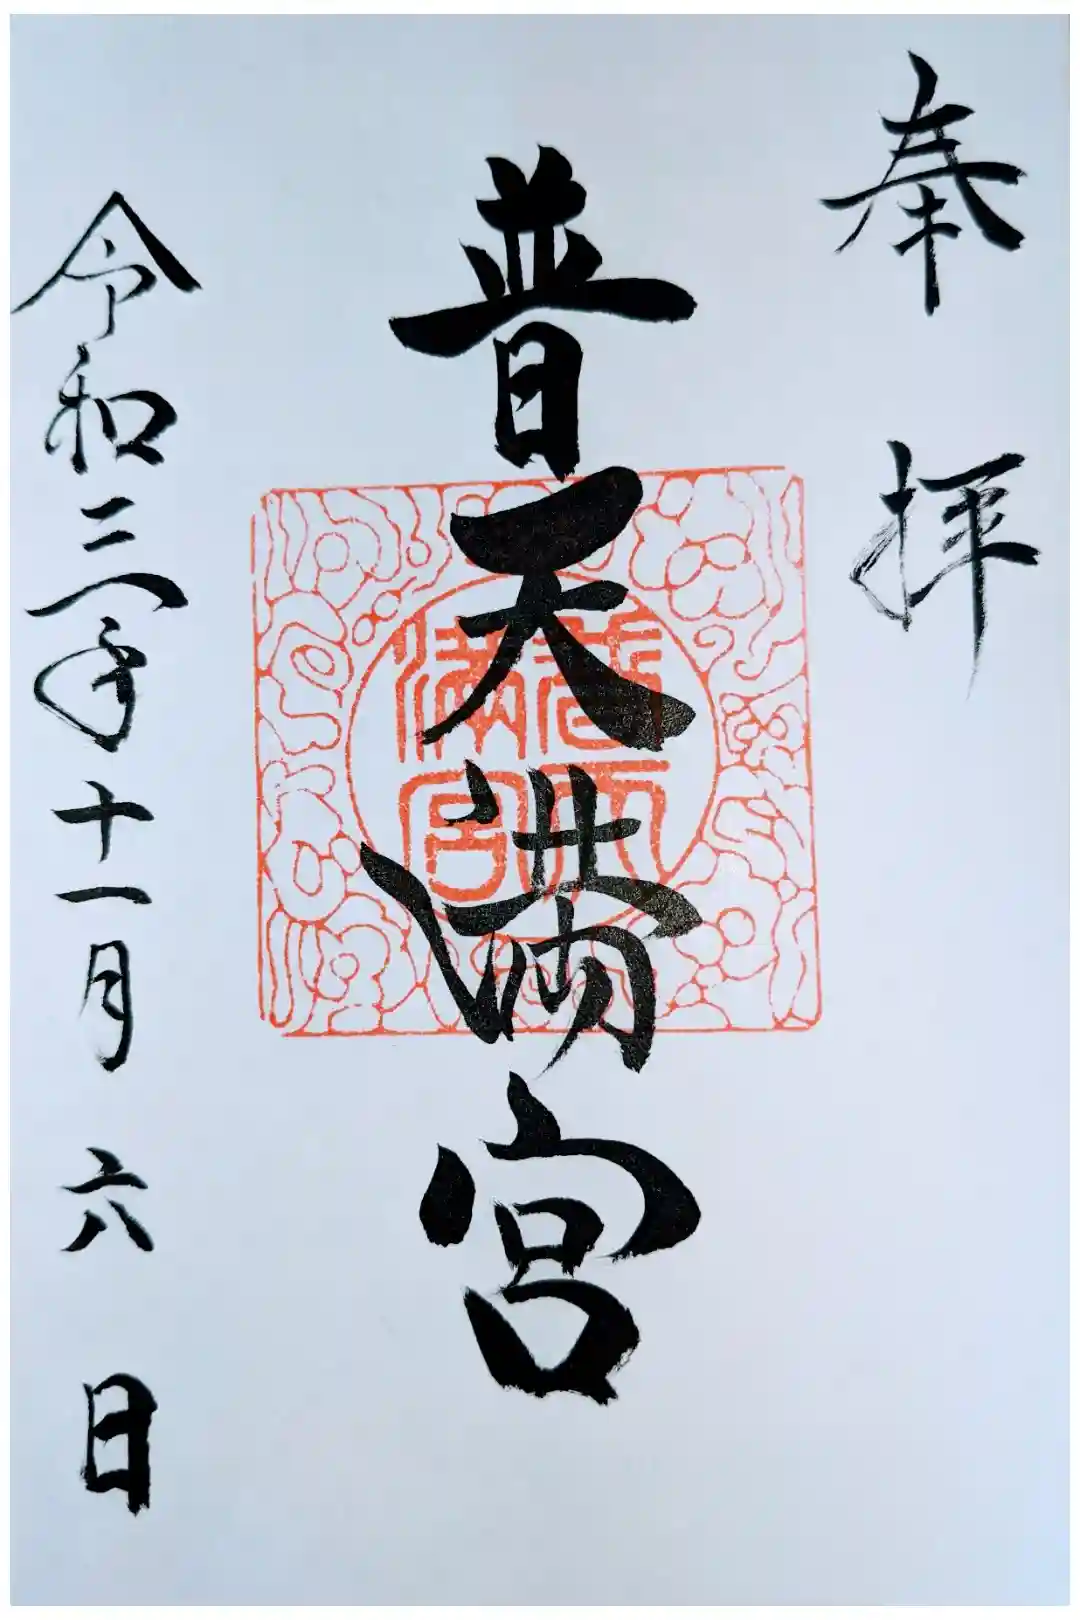 奉拝
普天満宮
普天満宮
令和三年十一月六日